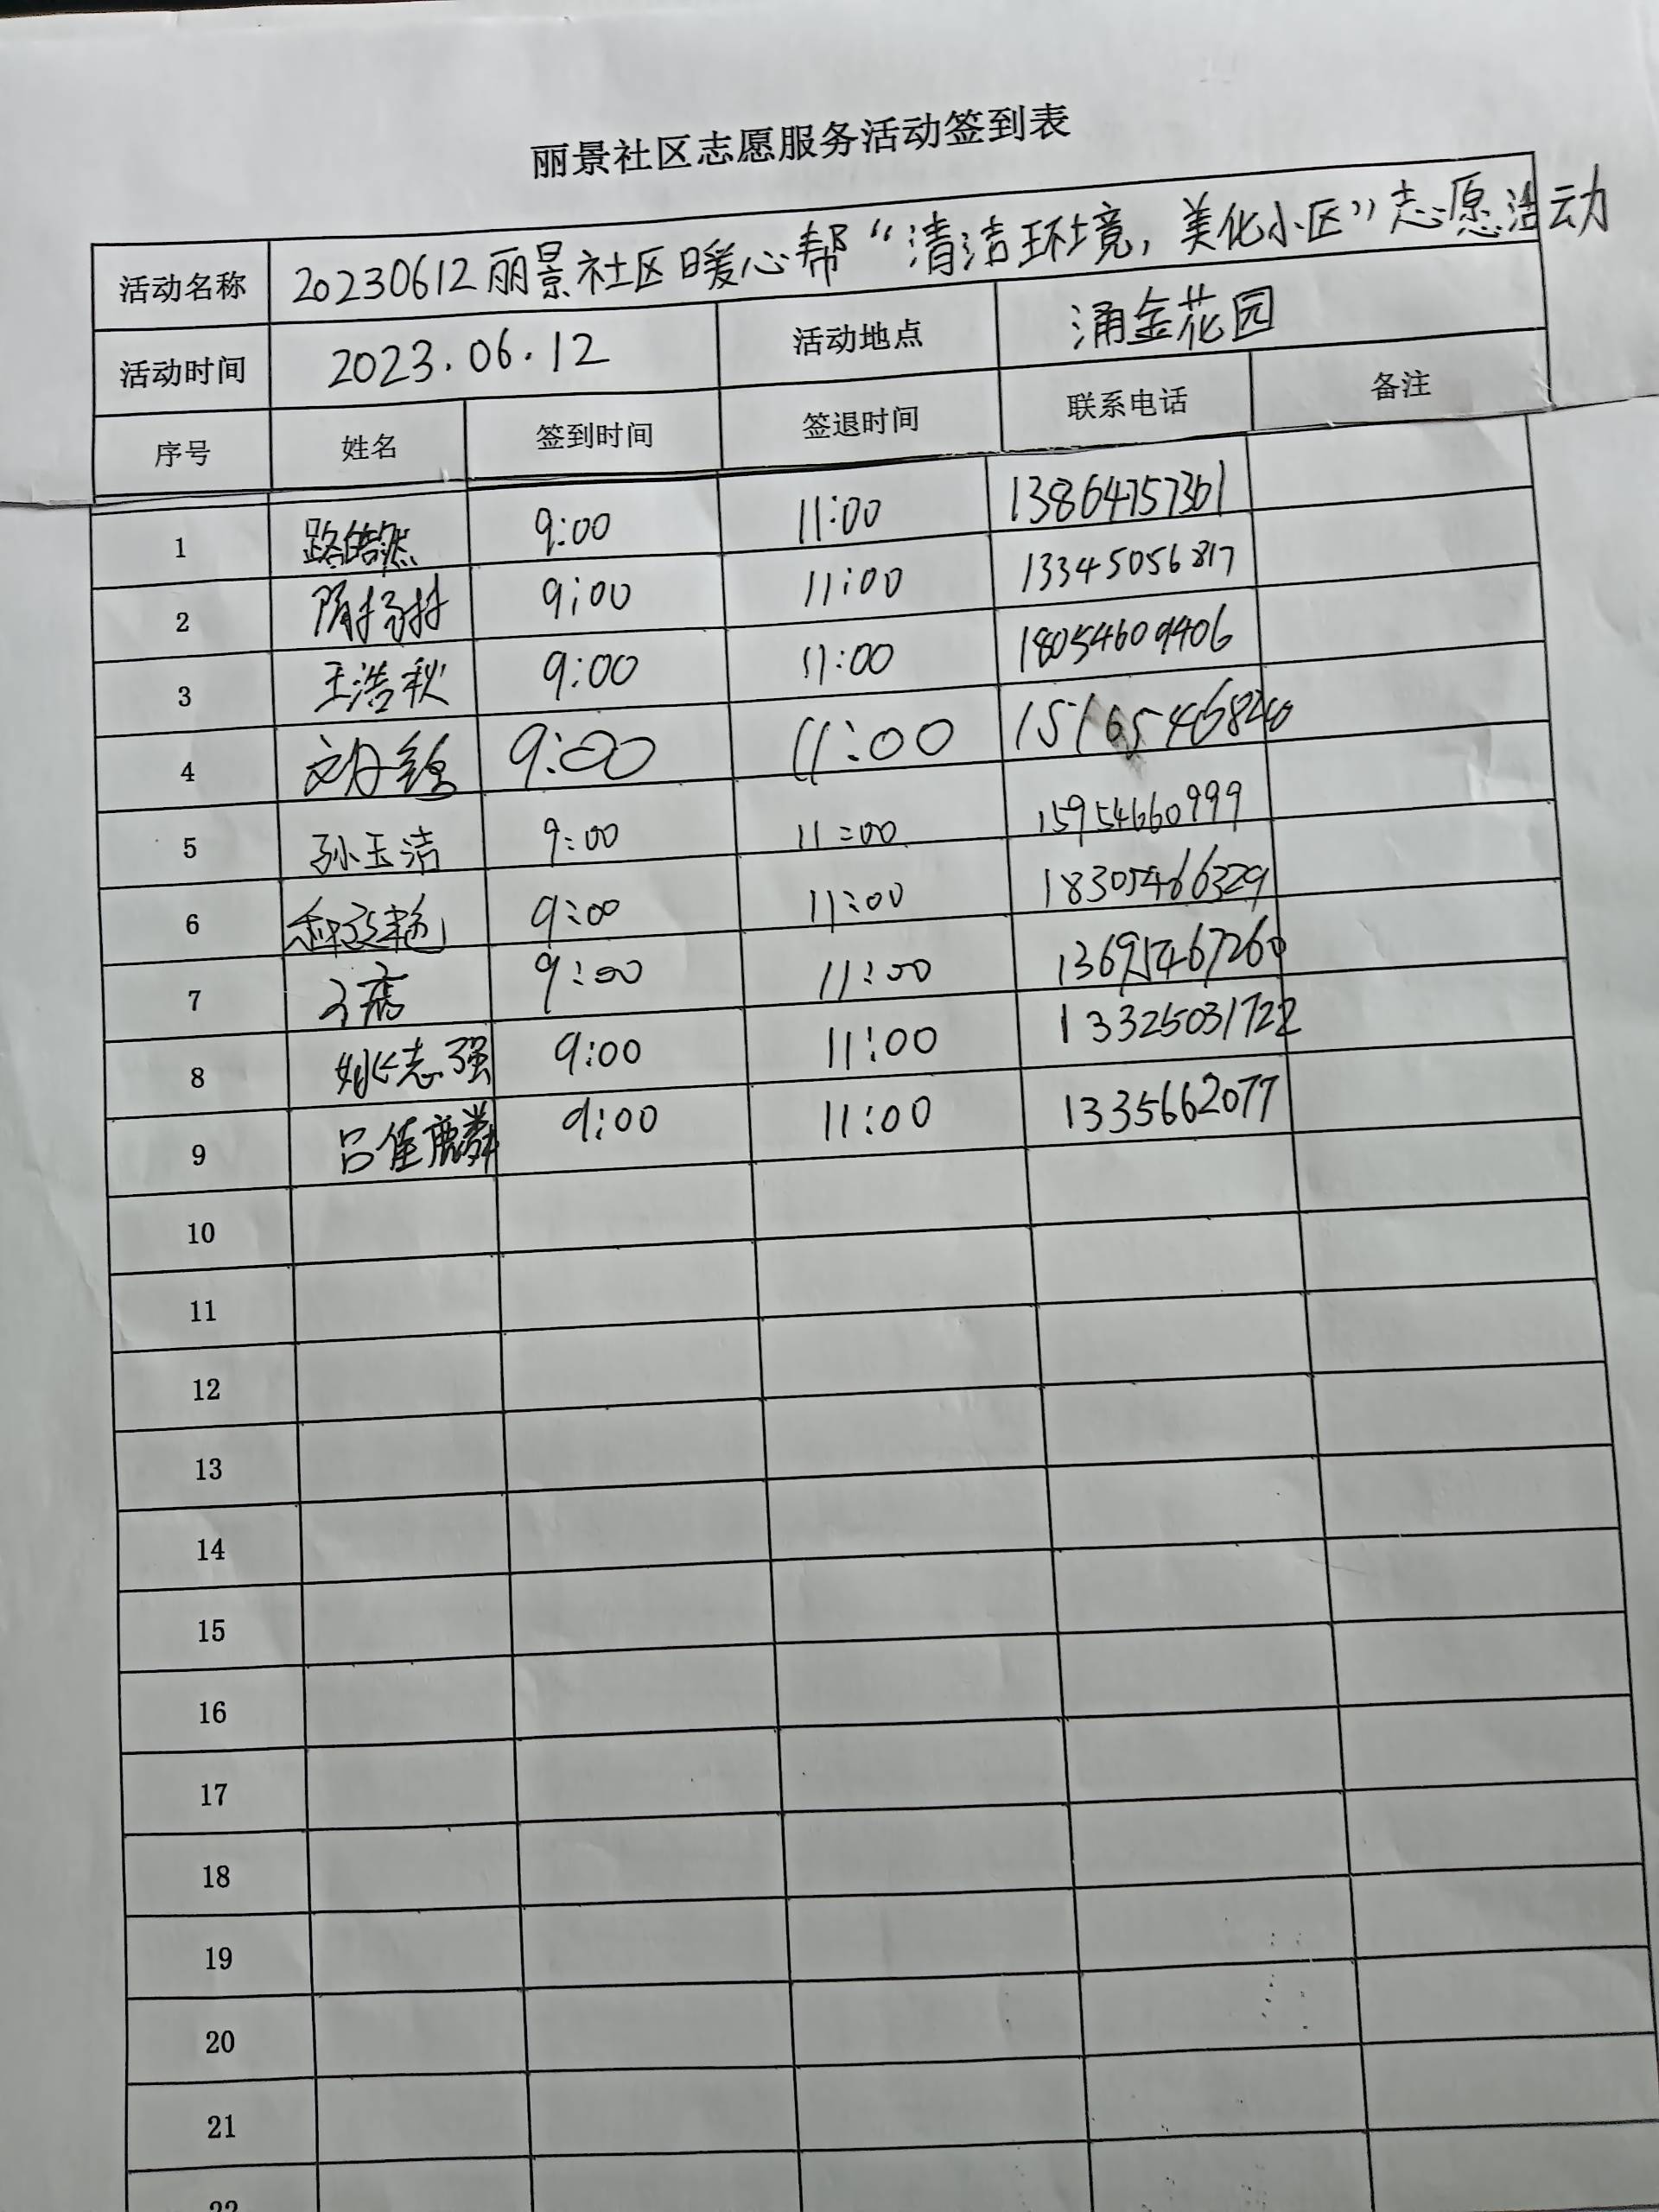 丽景社区志愿服务活动签到表
活动名称 20230612丽景社区暖心帮“清洁环境，美化小区”志愿活动
活动时间 2023.06.12 活动地点 涌金花园
序号 姓名 签到时间 签退时间 联系电话 备注
1 路皓然 9:00 11:00 13864757361
2 9:00 11:00 13345056817
3 王浩秋 9:00 11:00 18054609406
4 9:00 11:00
5 孙玉洁 9:00 11:00 15954660999
6 9:00 11:00 18305466329
7 9:00 11:00 13695467260
8 姚志强 9:00 11:00 13325031722
9 吕佳麟 9:00 11:00 1335662077
10
11
12
13
14
15
16
17
18
19
20
21
22